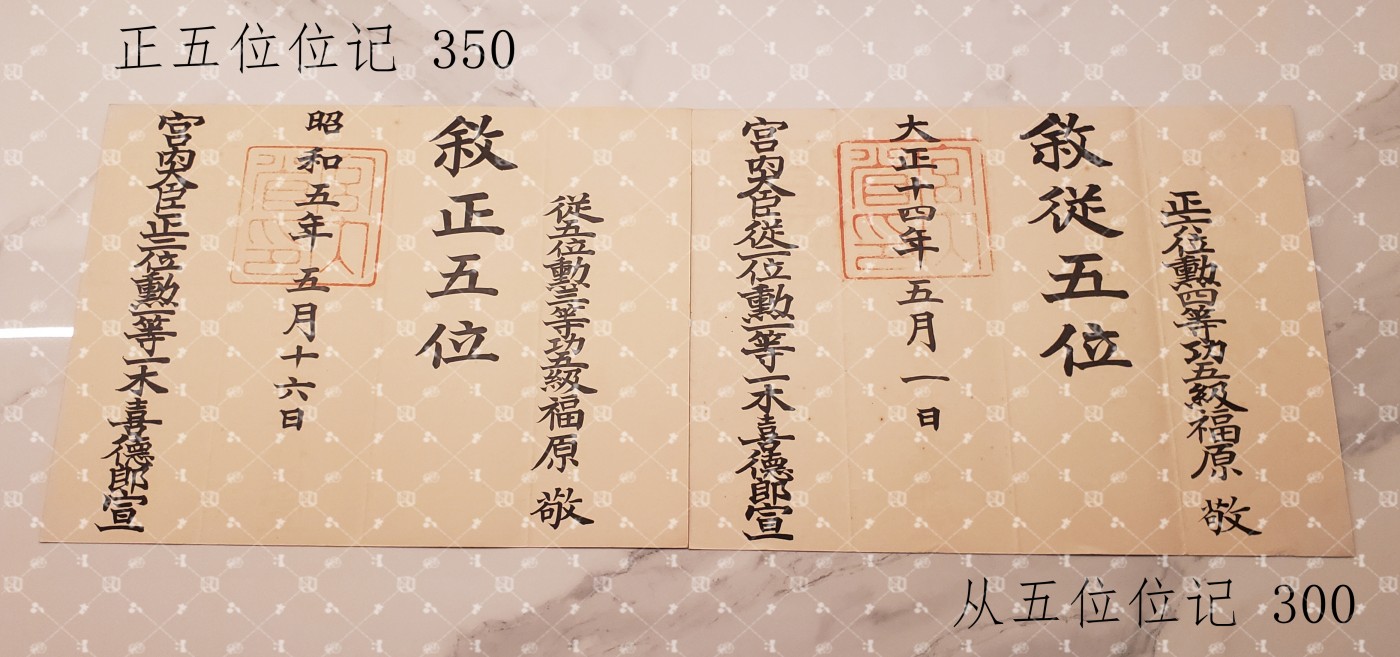 正五位位记 350
正六位勳四等功五級福原 敬
敘從五位
大正十四年五月一日
宮內大臣從二位勳一等一木喜德郎宣
從五位勳三等功五級福原 敬
敘正五位
昭和五年五月十六日
宮內大臣正三位勳一等一木喜德郎宣
从五位位记 300